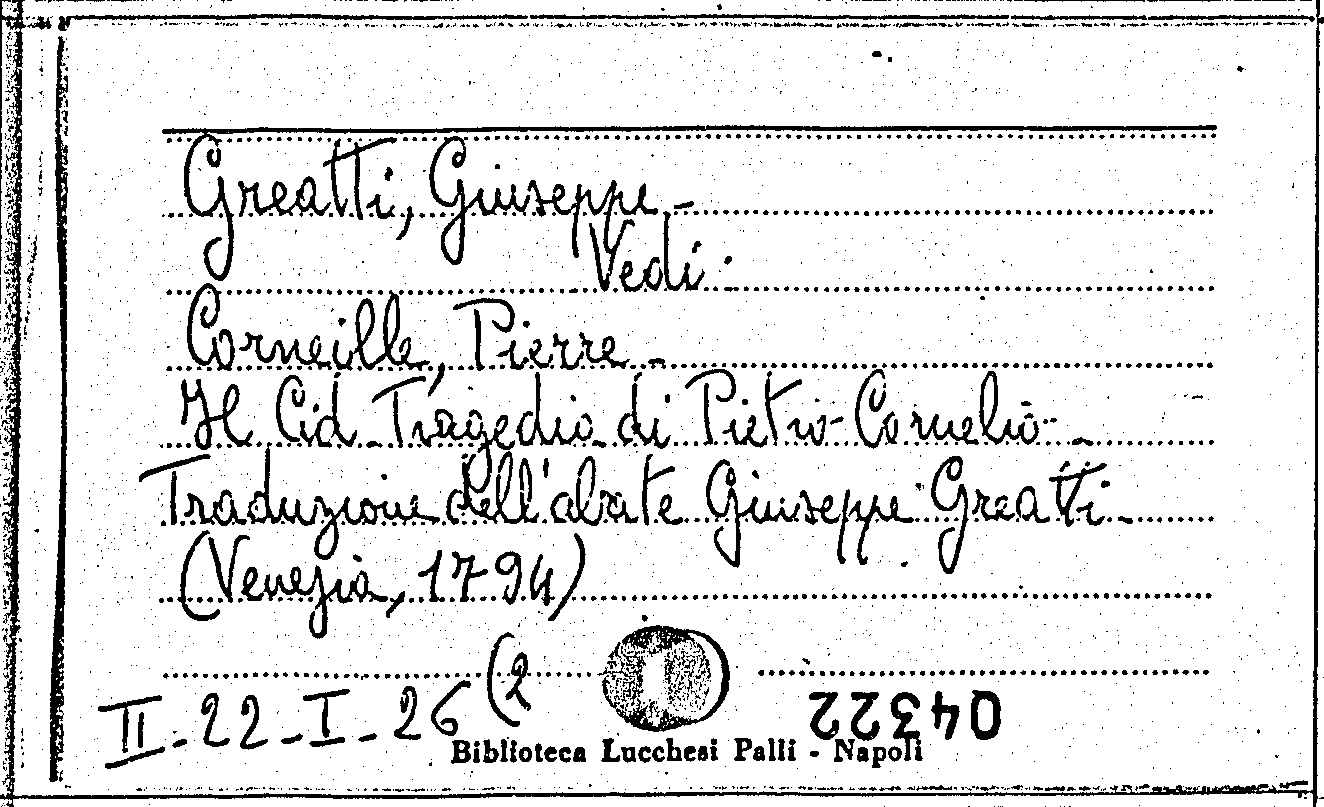 Greatti, Giuseppe.-
Vedi:
Corneille, Pierre-
Il Cid-Tragedia di Pietro Cornelio-
Traduzione dell'abate Giuseppe Greatti-
(Venezia, 1794)
II-22-I-26(2
04322
Biblioteca Lucchesi Palli - Napoli